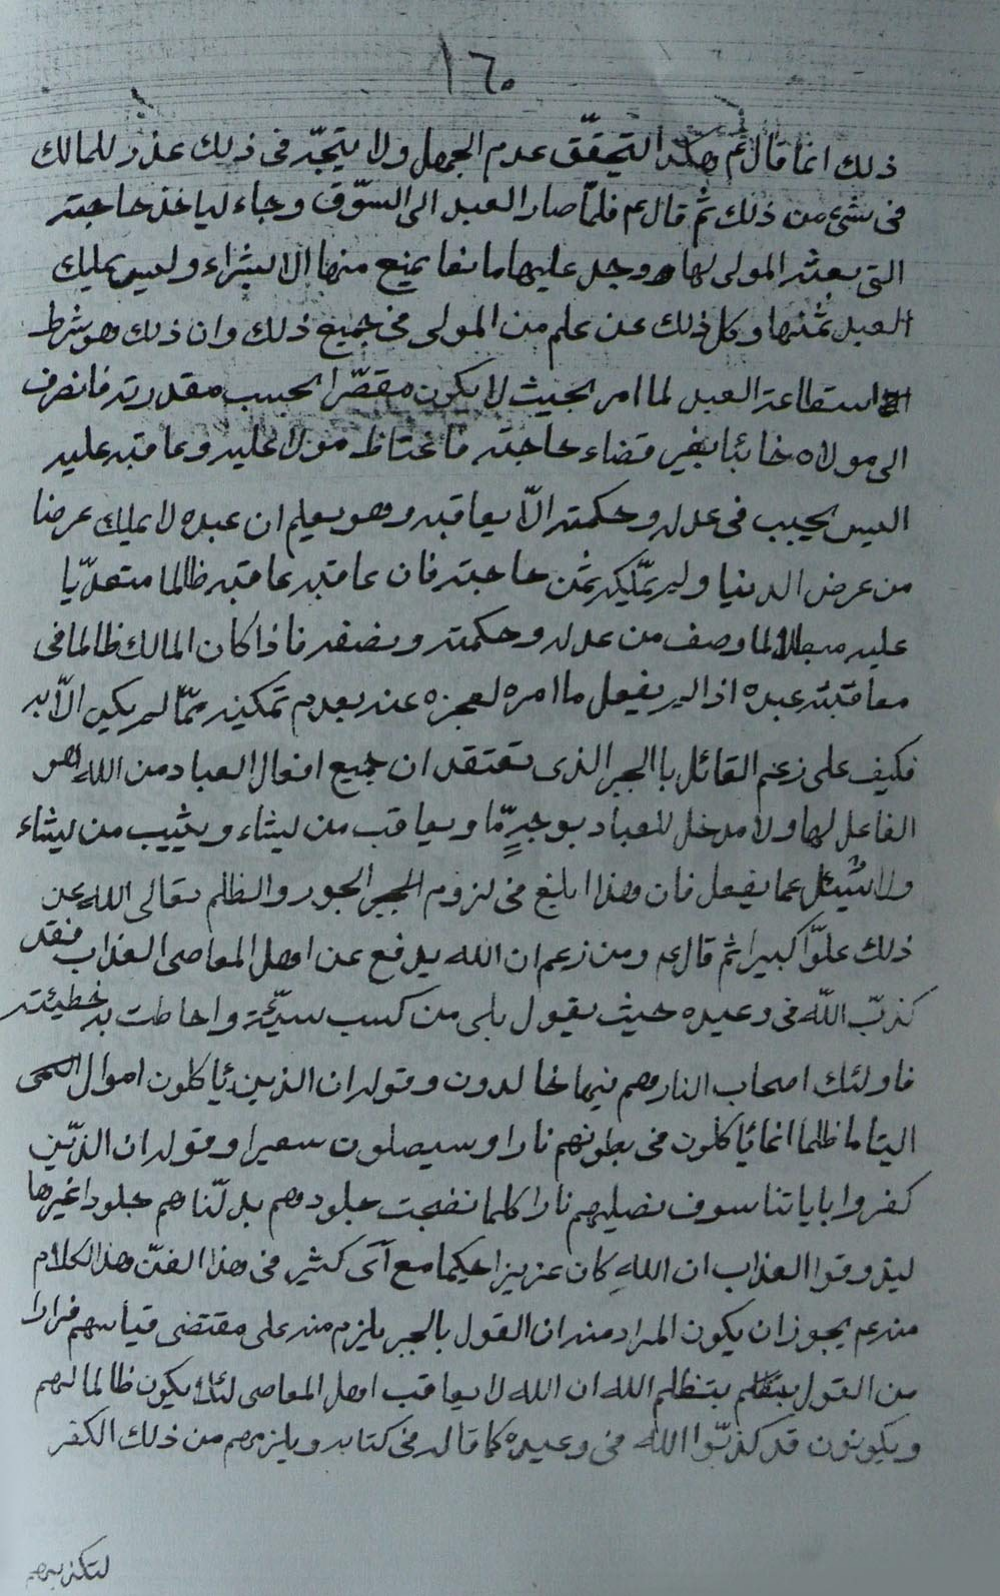 ١٦٠
ذلك انما قال ع هكذا لتحقّق عدم الجهل ولا يتجّه في ذلك عذر للمالك
في شيء من ذلك ثم قال ع فلمّا صار العبد الى السّوق وجاء لياخذ حاجته
التي بعثه المولى لها وجد عليها مانعا يمنع منها الا بشراء وليس يملك
العبد ثمنها وكل ذلك عن علم من المولى في جميع ذلك وان ذلك هو شرط
استطاعة العبد لما امر بحيث لا يكون مقصّرا بحسب مقدرته فانصرف
الى مولاه خائبا بغير قضاء حاجته فاغتاظ مولاه عليه وعاقبه عليه
اليس يجب في عدله وحكمته الّا يعاقبه وهو يعلم ان عبده لا يملك عرضا
من عرض الدنيا ولم يملّكه ثمن حاجته فان عاقبه عاقبه ظالما متعدّيا
عليه مبطلا لما وصف من عدله وحكمته ونصفه فاذا كان المالك ظالما في
معاقبته عبده اذا لم يفعل ما امره لعجزه عنه بعدم تمكينه ممّا لم يكن الّا به
فكيف على زعم القائل باالجبر الذى تعتقد ان جميع افعال العباد من الله هو
الفاعل لها ولا مدخل للعباد بوجهٍ مّا ويعاقب من يشاء ويثيب من يشاء
ولا يُسْئل عما يفعل فان هذا ابلغ في لزوم الجبر الجور والظلم تعالى الله عن
ذلك علوّا كبيرا ثم قال ع ومن زعم ان الله يدفع عن اهل المعاصى العذاب فقد
كذّب اللّه في وعيده حيث يقول بلى من كسب سيّئة واحاطت به خطيئته
فاولئك اصحاب النار هم فيها خالدون وقوله ان الذين ئاكلون اموال
اليتاما ظلما انما ئاكلون في بطونهم نارا وسيصلون سعيرا وقوله ان الذّين
كفروا باياتنا سوف نصليهم نارا كلما نضجت جلودهم بدلّناهم جلودا غيرها
ليذوقوا العذاب ان اللهِ كان عزيزا حكيما مع آىٍ كثير في هذا الفنّ وهذا الكلام
منه ع يجوز ان يكون المراد منه ان القول بالجبر يلزم منه على مقتضى قيأسهم فرارا
من القول بتظلم الله ان الله لا يعاقب اهل المعاصى لئلا يكون ظالما لهم
ويكونون قد كذبّوا اللّه في وعيده كما قاله في كتابه ويلزمهم من ذلك الكفر
لتكذيبهم